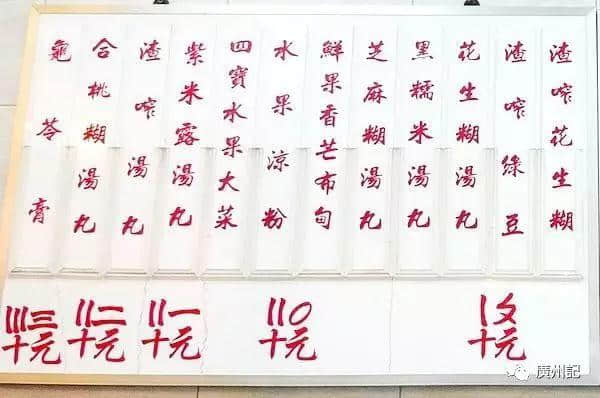 渣榨花生糊
渣榨綠豆
花生糊湯丸
黑糯米湯丸
芝麻糊湯丸
鮮果香芒布甸
水果涼粉
四寶水果大菜
紫米露湯丸
渣榨湯丸
合桃糊湯丸
龜苓膏
〡〩
十元
〢〇
十元
〢一
十元
〢二
十元
〣三
十元
廣州記